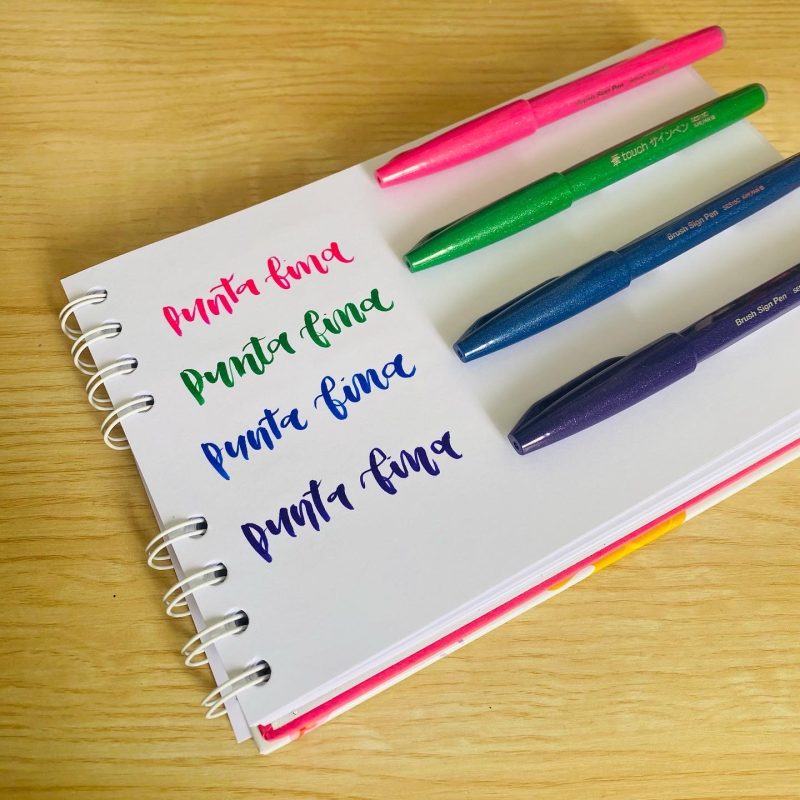 punta fina
punta fina
punta fina
punta fina
Brush Sign Pen
touch サインペン
Brush Sign Pen
Brush Sign Pen